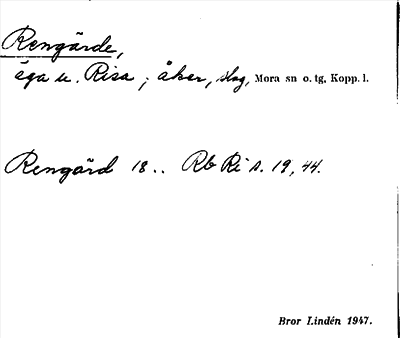 Rengärde,
äga u. Risa; åker, slog, Mora sn o. tg, Kopp. l.
Rengärd 18.. Rb Ri s. 19, 44.
Bror Lindén 1947.